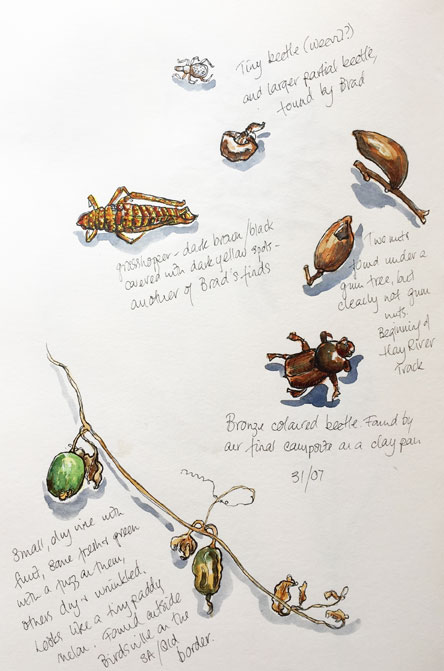 Tiny beetle (weevil?)
and larger partial beetle,
found by Brad
grasshopper - dark brown/black
covered with dark yellow spots -
another of Brad's finds
Two nuts
found under a
gum tree, but
clearly not gum
nuts.
Beginning of
Hay River
Track
Bronze coloured beetle. Found by
our final campsite on a clay pan
31/07
Small, dry vine with
fruit, some fresh & green
with a fuzz on them,
others dry & wrinkled.
Looks like a tiny paddy
melon. Found outside
Birdsville on the
SA/Qld
border.